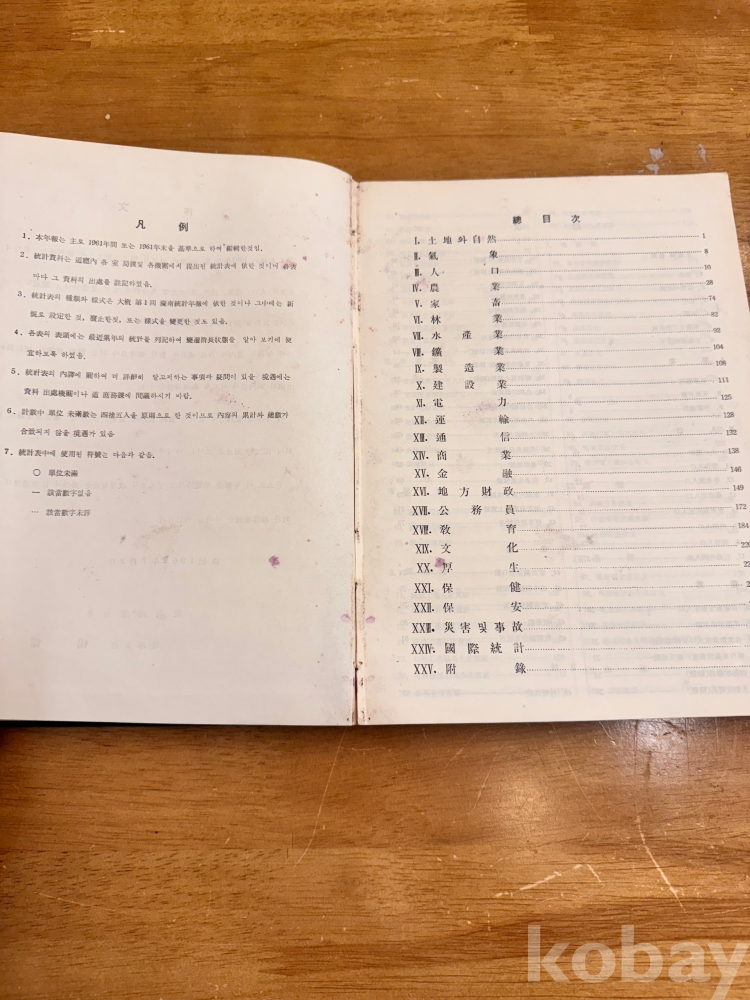 凡例
1. 本年報는 主로 1961年間 또는 1961年末을 基準으로 하여 編輯한것임.
2. 統計資料는 道廳內 各 室 局課및 各機關에서 提出된 統計表에 依한 것이며
마다 그 資料의 出處를 註記하였음.
3. 統計表의 種類와 樣式은 大概 第1回 統計年報에 依한 것이나 그中에는 新
規로 設定한 것, 廢止한것, 또는 樣式을 變更한 것도 있음.
4. 各表의 表頭에는 最近累年의 統計를 列記하여 變遷消長狀態를 알아 보기에 便
宜하도록 하였음.
5. 統計表의 內譯에 關하여 더 詳細히 알고저하는 事項과 疑問이 있을 境遇에는
資料 出處機關이나 道 庶務課에 問議하시기 바람.
6. 計數中 單位 未滿數는 四捨五入을 原則으로 한 것이므로 內容의 累計와 總數가
合致되지 않을 境遇가 있음
7. 統計表中에 使用된 符號는 다음과 같음.
○ 單位未滿
— 該當數字없음
… 該當數字未詳
總目次
I. 土地와自然 1
II. 氣象 8
III. 人口 10
IV. 農業 28
V. 家畜 74
VI. 林業 82
VII. 水産業 92
VIII. 鑛業 104
IX. 製造業 108
X. 建設業 111
XI. 電力 125
XII. 運輸 128
XIII. 通信 132
XIV. 商業 138
XV. 金融 146
XVI. 地方財政 149
XVII. 公務員 172
XVIII. 敎育 184
XIX. 文化
XX. 厚生
XXI. 保健
XXII. 保安
XXIII. 災害및事故
XXIV. 國際統計
XXV. 附錄
kobay